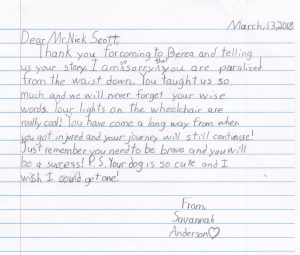 March, 13, 2018
Dear Mr. Nick Scott,
Thank you for coming to Berea and telling
us your story. I am so sorry that you are paralized
from the waist down. You taught us so
much and we will never forget your wise
words. Your lights on the wheelchair are
really cool! You have come a long way from when
you got injured and your journey will still continue!
Just remember you need to be brave and you will
be a success! P.S. Your dog is so cute and I
wish I could get one!
From,
Savannah
Anderson♡